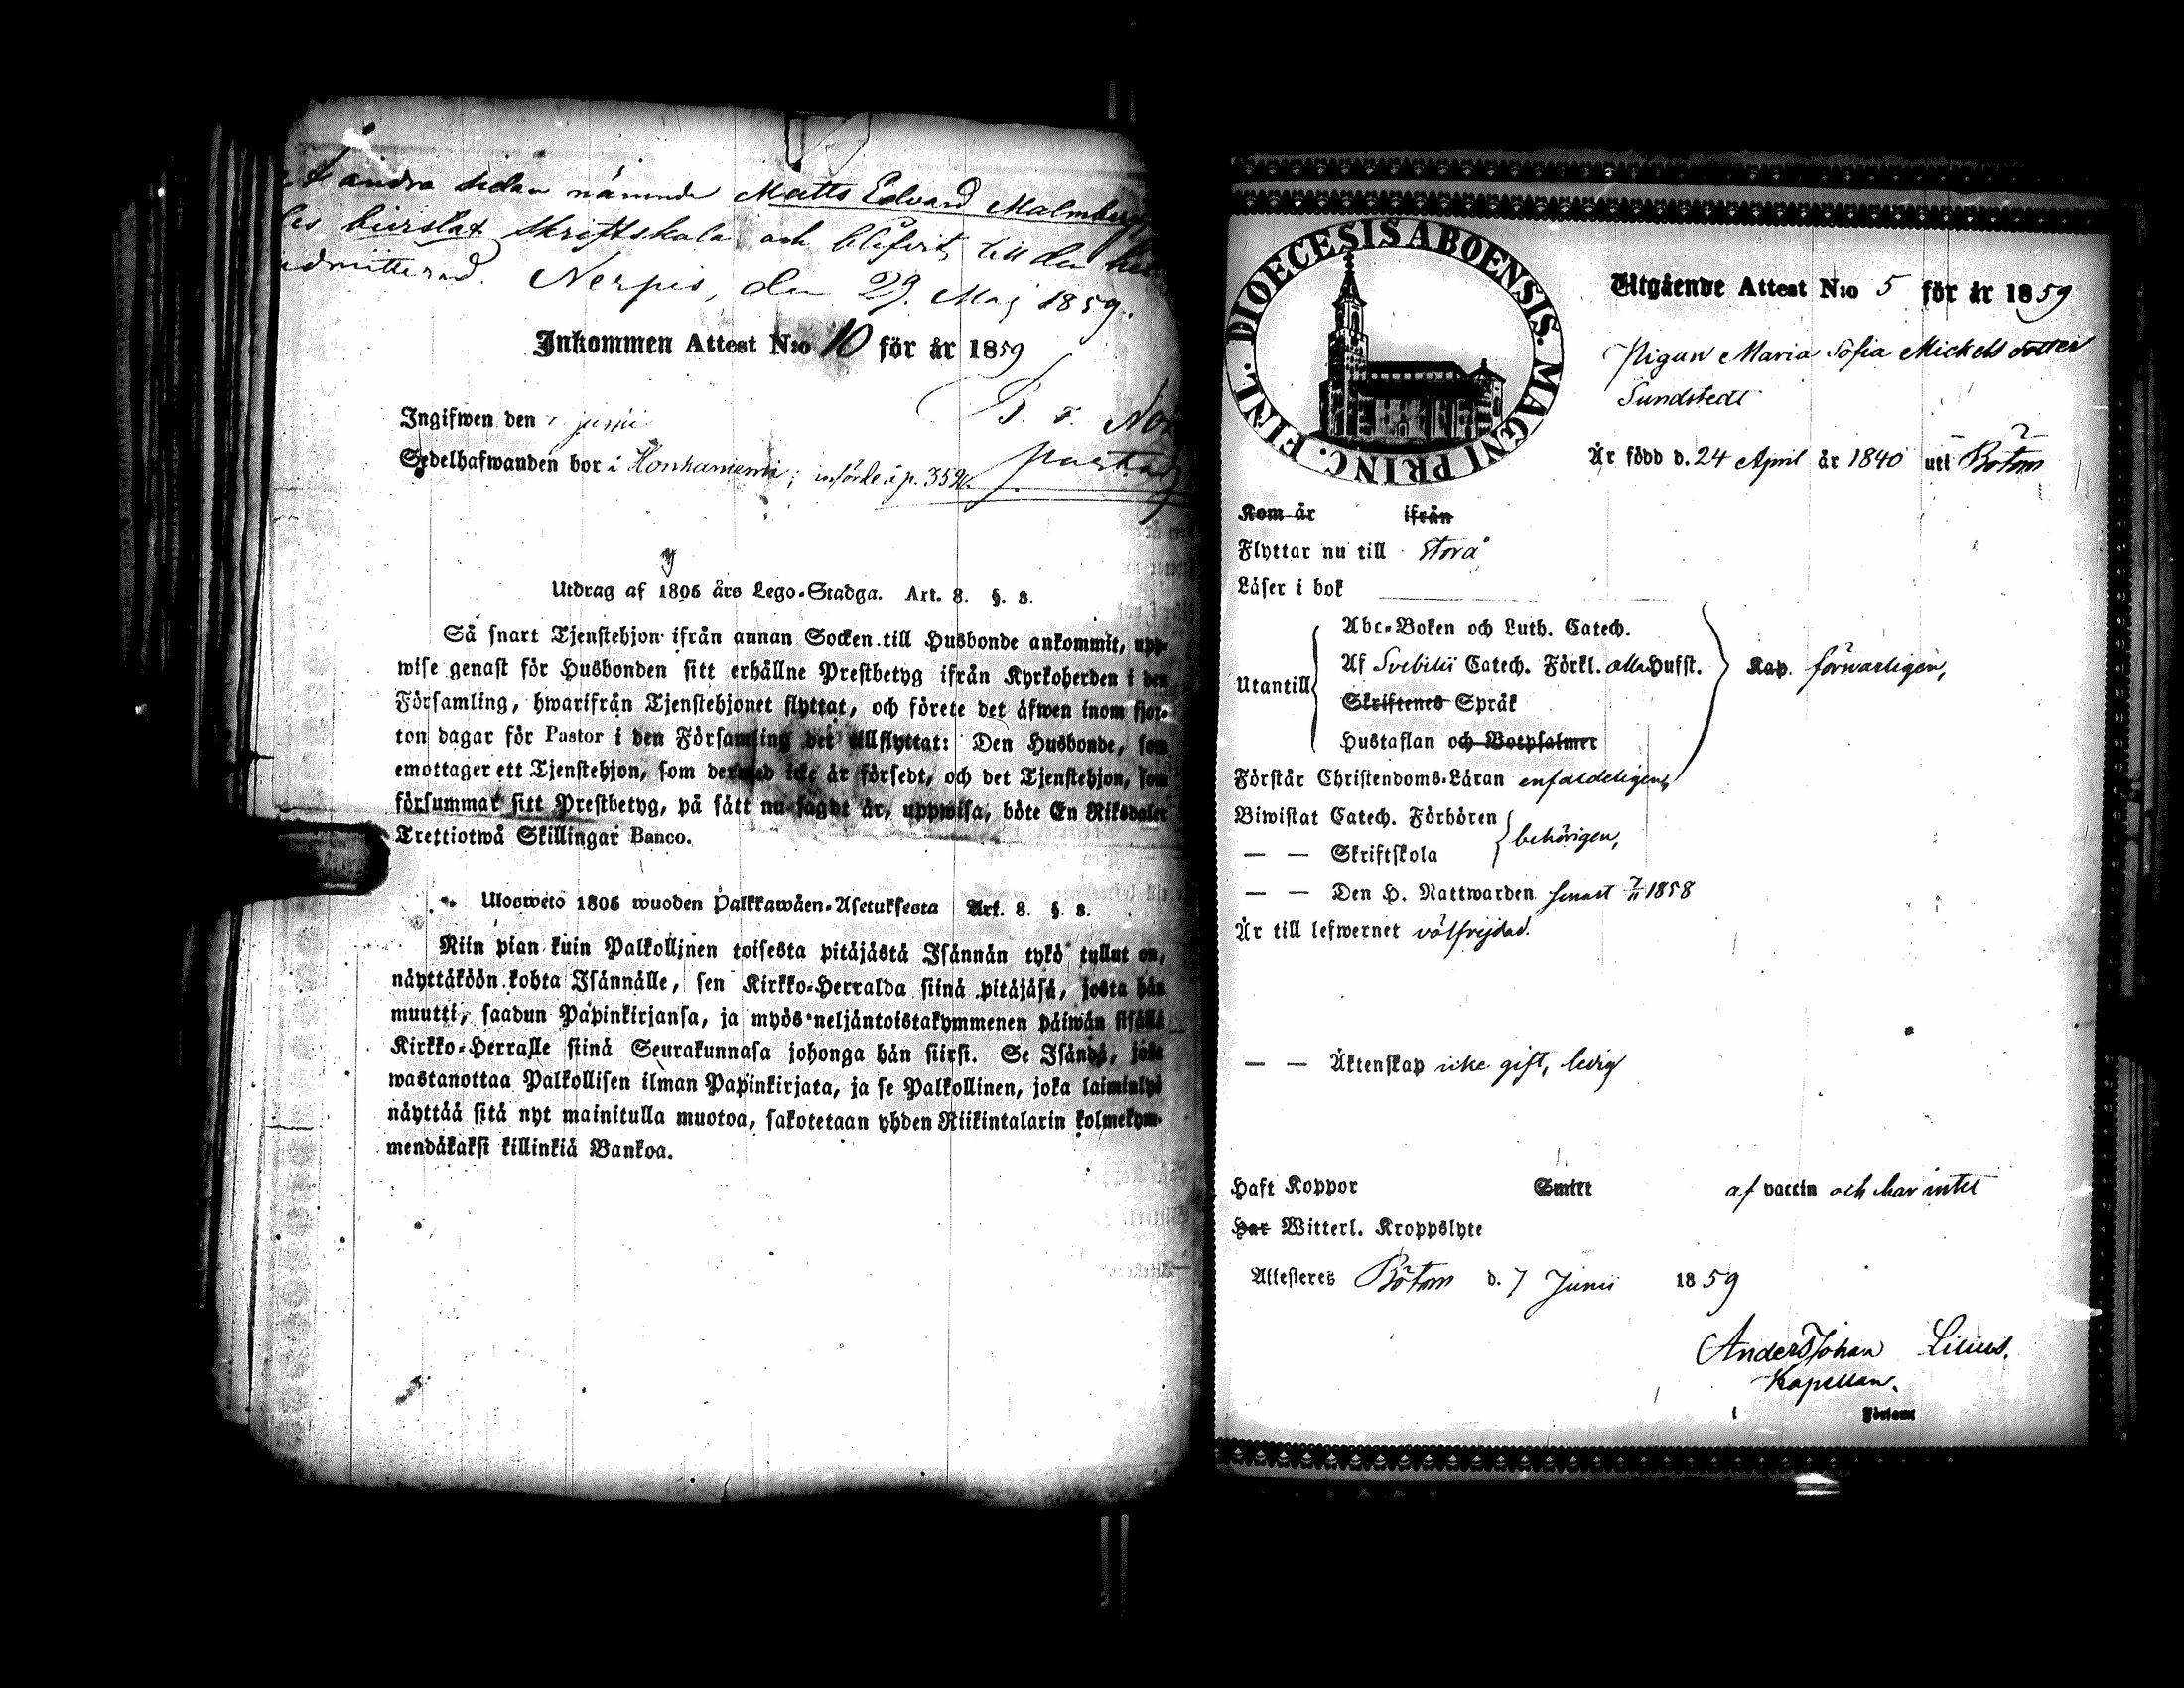 andra sidan nämnde Matts Edvard Malmberg
bivistat Skriftskola och blifvit till den
admitterad. Nerpis, den 29. Maj 1859.
Inkommen Attest N:o 10 för år 1859
Ingifwen den juni
Sedelhafwanden bor i Honkaniemi; införde å p. 359.
Utdrag af 1805 års Lego-Stadga. Art. 8. §. 8.
Så snart Tjenstehjon ifrån annan Socken till Husbonde ankommit, upp-
wise genast för Husbonden sitt erhållne Prestbetyg ifrån Kyrkoherden i den
Församling, hwarifrån Tjenstehjonet flyttat, och förete det äfwen inom fjor-
ton dagar för Pastor i den Församling det tillflyttat: Den Husbonde, som
emottager ett Tjenstehjon, som dermed icke är försedt, och det Tjenstehjon, som
försummar sitt Prestbetyg, på sätt nu sagdt är, uppwisa, böte En Riksdaler
Trettiotwå Skillingar Banco.
Uloswéto 1805 wuoden Palkkawäen-Asetuksesta Art. 8. §. 8.
Niin pian kuin Palkollinen toisesta pitäjästä Isännän tykö tullut on,
näyttäköön kohta Isännälle, sen Kirkko-Herralda siinä pitäjäsä, josta hän
muutti, saadun Papinkirjansa, ja myös neljäntoistakymmenen päiwän sisällä
Kirkko-Herralle siinä Seurakunnasa johonga hän siirsi. Se Isändä, joka
wastanottaa Palkollisen ilman Papinkirjata, ja se Palkollinen, joka laiminlyö
näyttää sitä nyt mainitulla muotoa, sakotetaan yhden Riikintalarin kolmekym-
mendäkaksi killinkiä Bankoa.
FINL. DIOECESIS ABOENSIS. MAGNI PRINC.
Utgående Attest N:o 5 för år 1859
Pigan Maria Sofia Mickelsdotter
Sundstedt
Är född d. 24 April år 1840 uti Bötom
Kom år ifrån
Flyttar nu till Storå
Läser i bok
Abc-Boken och Luth. Catech.
Utantill Af Svebilii Catech. Förkl. alla Hufst. Kap. försvarligen,
Skriftenes Språk
Hustaflan och Botpsalmer
Förstår Christendoms-Läran enfaldeligen,
Biwistat Catech. Förhören behörigen,
— — Skriftskola
— — Den H. Nattwarden senast 7/11 1858
Är till lefwernet välfrejdad.
— — Äktenskap icke gift, ledig
Haft Koppor Smitt af vaccin och har intet
Har Witterl. Kroppslyte
Attesteres Bötom d. 7 Junii 1859
Anders Johan Lilius.
Kapellan.
i Församl